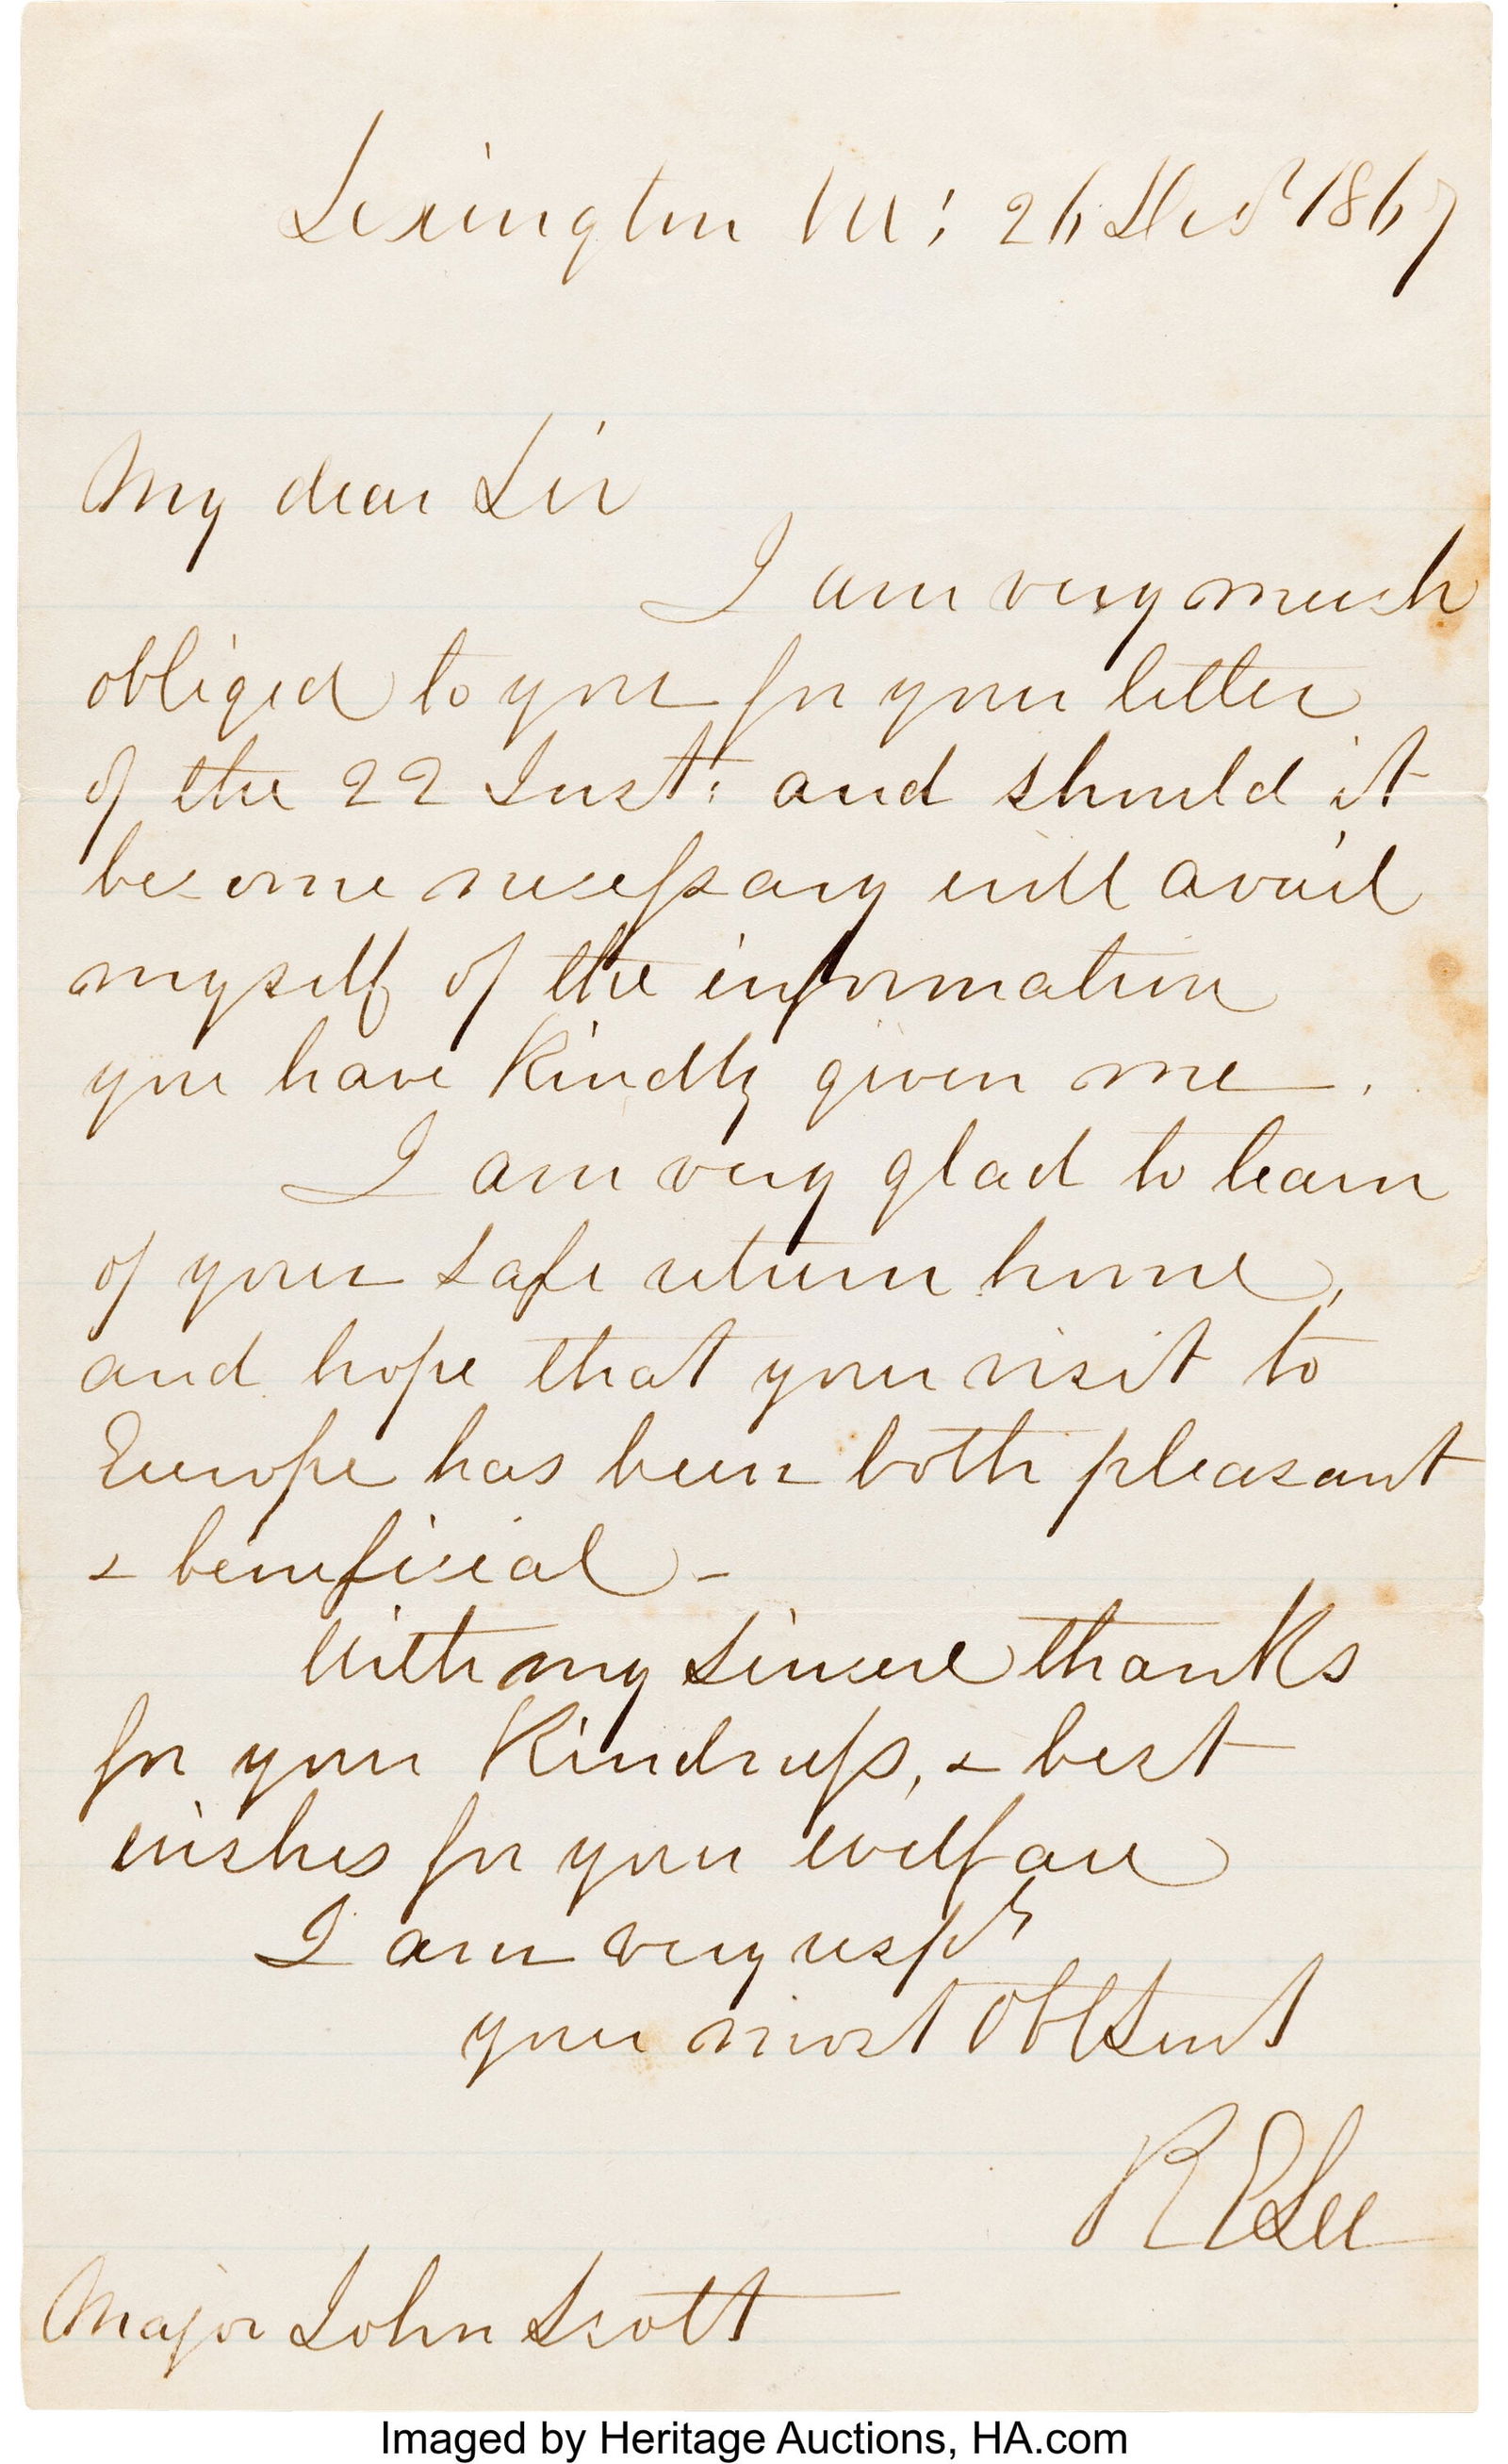 Lexington Va: 26 Decr 1867
My dear Sir
I am very much
obliged to you for your letter
of the 22 Inst: and should it
become necessary will avail
myself of the information
you have kindly given me.
I am very glad to learn
of your safe return home,
and hope that your visit to
Europe has been both pleasant
& beneficial -
With my sincere thanks
for your kindness, & best
wishes for your welfare
I am very respy
your most Obt Servt
R E Lee
Major John Scott
Imaged by Heritage Auctions, HA.com